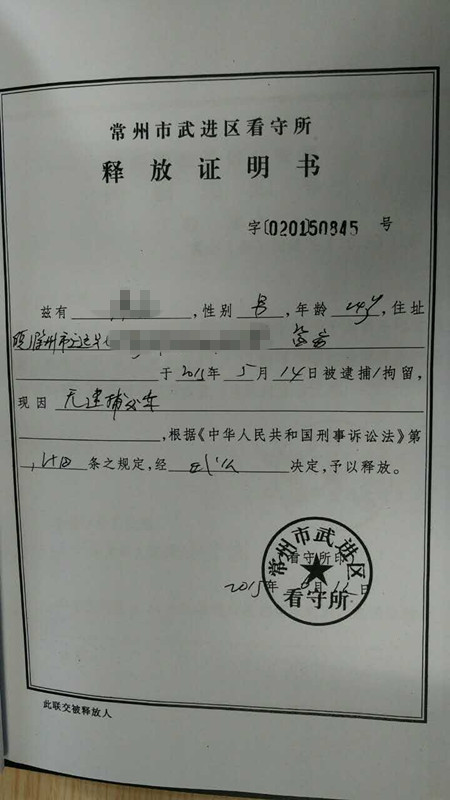 常州市武进区看守所
释放证明书
字[020150845 号
兹有 ,性别 男,年龄 ,住址
于2015年 5月 14日被逮捕/拘留,
现因 无逮捕必要
,根据《中华人民共和国刑事诉讼法》第
条之规定,经 决定,予以释放。
看守所印
2015年 6月 12日
常州市武进区
看守所
此联交被释放人